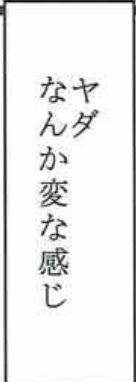 ヤダ
なんか変な感じ